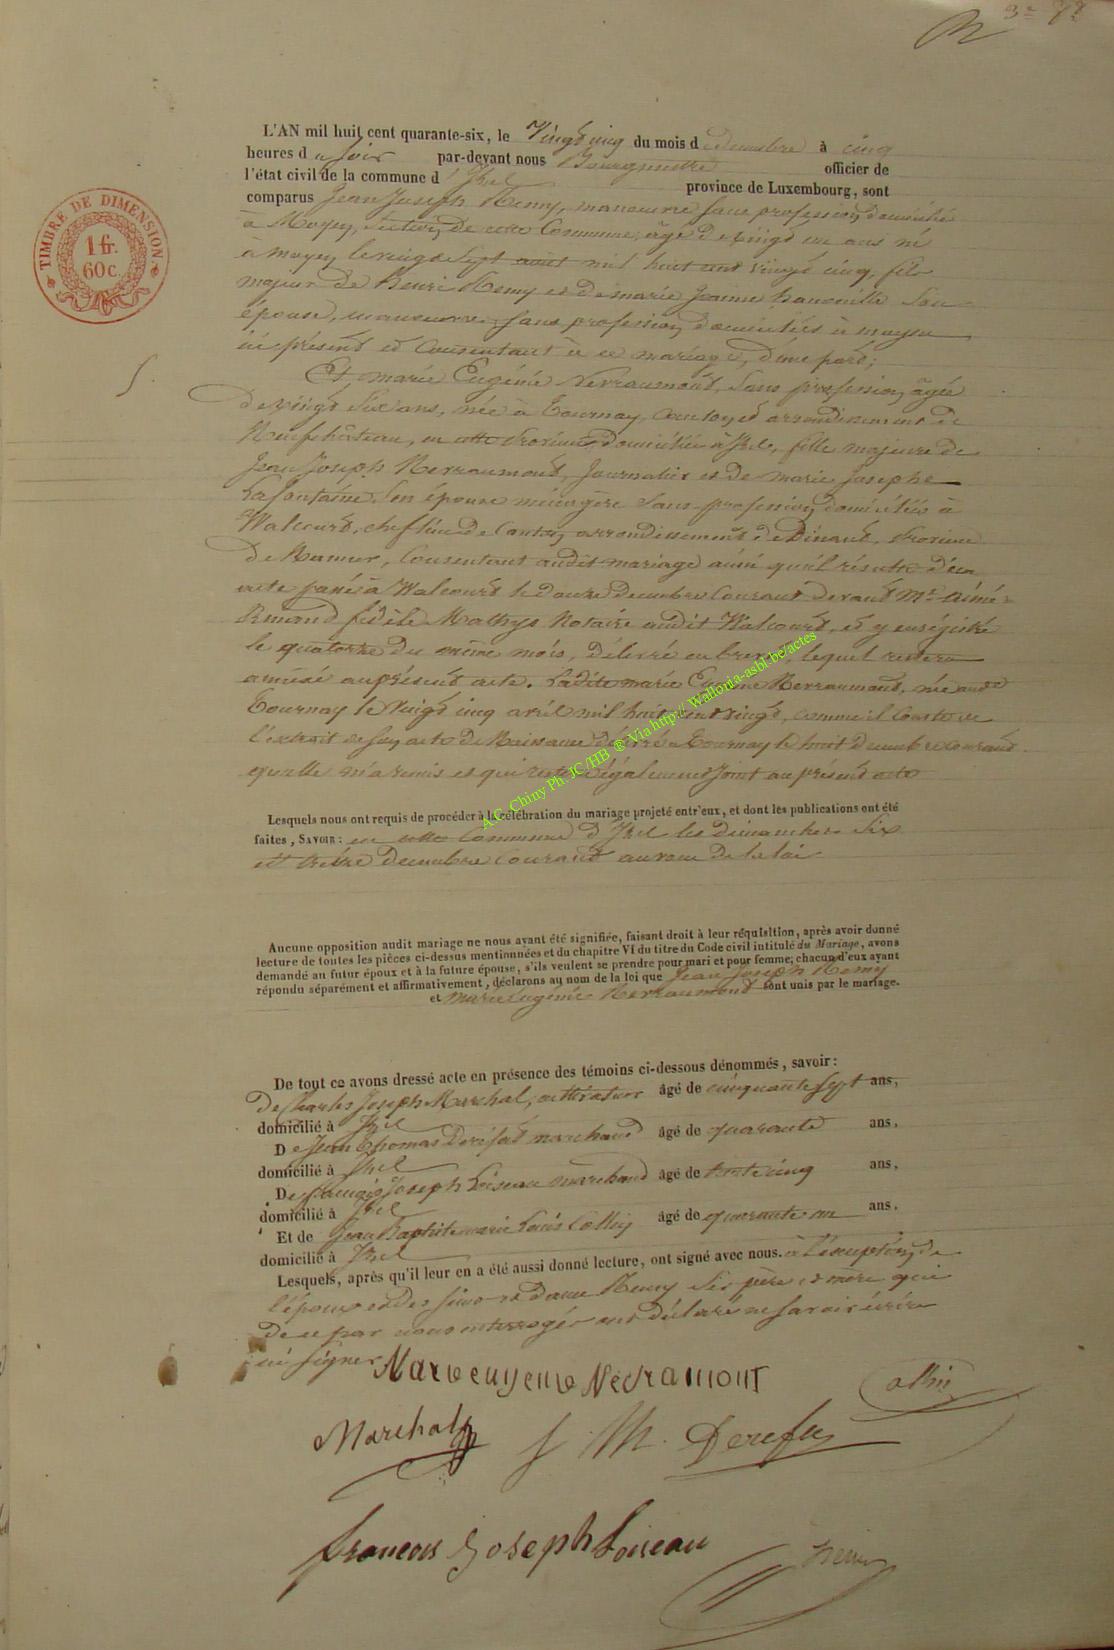 3e
L'AN mil huit cent quarante-six, le Vingt cinq du mois d decembre à cinq
heures d u soir par-devant nous Bourgmestre officier de
l'état civil de la commune d' Izel province de Luxembourg, sont
comparus Jean Joseph Remy, manoeuvre sans profession, domicilié
à Moyen, section de cette Commune, âgé de vingt un ans né
à moyen le vingt sept août mil huit cent vingt cinq, fils
majeur de Henri Remy et de marie Jeanne son
épouse, manoeuvre, sans profession, domiciliés à moyen
ici présent et Consentant à ce mariage, d'une part;
Et, marie Eugénie Nerraumont, sans profession, âgée
de vingt six ans, née à Tournay, Canton et arrondissement de
Neufchâteau, en cette Province, domiciliée à Izel, fille majeure de
Jean Joseph Nerraumont, Journalier et de marie Josephe
Lafontaine son épouse ménagère sans profession, domiciliés à
Walcourt, chef lieu de Canton, arrondissement de Dinant, Province
de Namur, Consentant audit mariage ainsi qu'il résulte d'un
acte passé à Walcourt le douze decembre Courant devant Mr Aimé-
Armand fidèle Mathys Notaire audit Walcourt, et y enregistré
le quatorze du même mois, délivré en brevet, lequel restera
annexé au présent acte. Ladite marie Eugénie Nerraumont, née audit
Tournay le Vingt cinq avril mil huit cent vingt, comme il Conste de
l'extrait de son acte de Naissance délivré à Tournay le huit Decembre courant
qu'elle m'a remis et qui reste également joint au présent acte
Lesquels nous ont requis de procéder à la célébration du mariage projeté entr'eux, et dont les publications ont été
faites, SAVOIR: en cette Commune d'Izel les dimanches Six
et treize Decembre Courant au vœu de la loi
Aucune opposition audit mariage ne nous ayant été signifiée, faisant droit à leur réquisition, après avoir donné
lecture de toutes les pièces ci-dessus mentionnées et du chapitre VI du titre du Code civil intitulé du Mariage, avons
demandé au futur époux et à la future épouse, s'ils veulent se prendre pour mari et pour femme; chacun d'eux ayant
répondu séparément et affirmativement, déclarons au nom de la loi que Jean Joseph Remy
et marie Eugénie Nerraumont sont unis par le mariage.
De tout ce avons dressé acte en présence des témoins ci-dessous dénommés, savoir:
De Charles Joseph Marchal, âgé de cinquante sept ans,
domicilié à Izel
De Jean Thomas marchand âgé de quarante ans,
domicilié à Izel
De françois Joseph Loiseau marchand âgé de trente cinq ans,
domicilié à Izel
Et de Jean Baptiste marie Louis Collin âgé de quarante un ans,
domicilié à Izel
Lesquels, après qu'il leur en a été aussi donné lecture, ont signé avec nous. à l'exception de
l'époux et des sieur et dame Remy ses père et mère qui
de ce par nous interrogés ont déclaré ne savoir écrire
ni signer
Marie eugenie Nedramont
Collin
Marchal
françois Joseph Loiseau
TIMBRE DE DIMENSION
1 fr.
60 c.
A.C. Chiny Ph. JC/HB ® Via http://Wallonia-asbl.be/actes